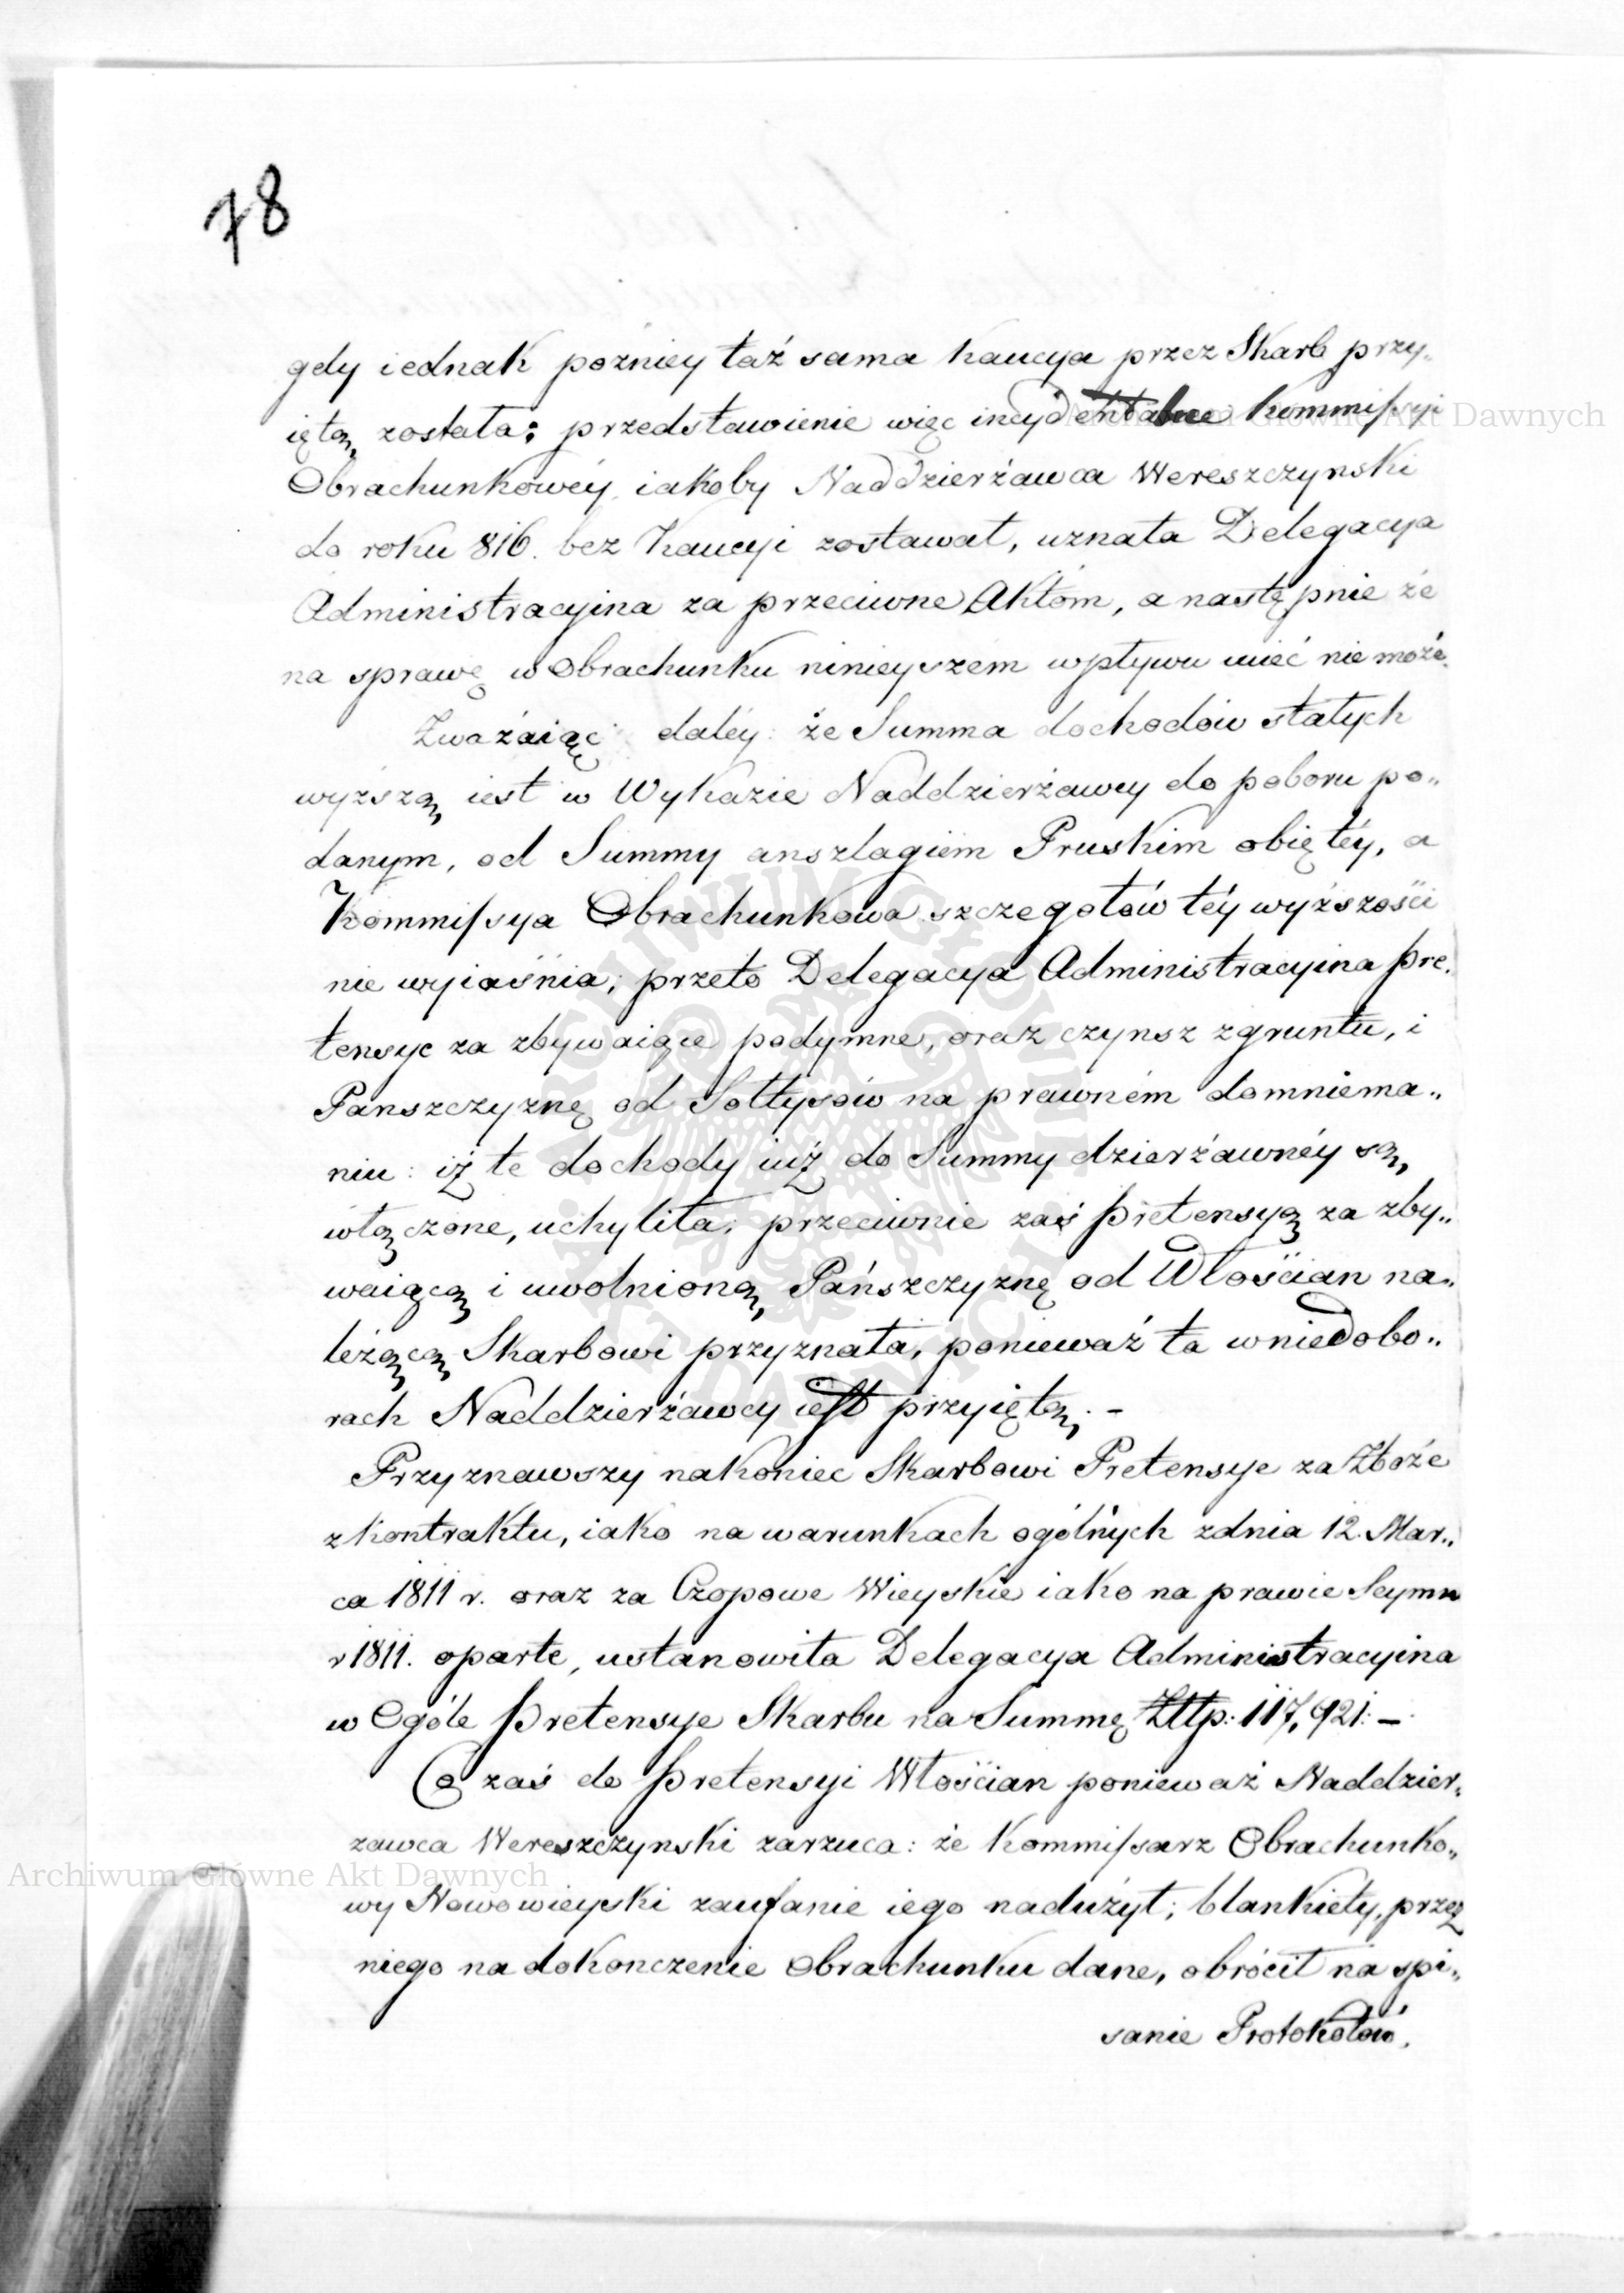 78
gdy iednak pozniey taż sama kaucya przez Skarb przy„
iętą została; przedstawienie więc incydentalne Kommissyi
Obrachunkowéy, iakoby Naddzierżawca Wereszczynski
do roku 816. bez Kaucyi zostawał, uznała Delegacya
Administracyina za przeciwne Aktom, a następnie że
na sprawę w Obrachunku ninieyszem wpływu mieć nie może.
Zważaiąc daléy: że Summa dochodów stałych
wyższą iest w Wykazie Naddzierżawcy do poboru po„
danym, od Summy anszlagiem Pruskim obiętéy, a
Kommissya Obrachunkowa szczegółów téy wyższości
nie wyiaśnia; przeto Delegacya Administracyina pre„
tensye za zbywaiące podymne, oraz czynsz z gruntu, i
Panszczyznę od Sołtysów na prawném domniema„
niu: iż te dochody iuż do Summy dzierżawnéy są
włączone, uchyliła; przeciwnie zaś pretensyą za zby„
waiącą i uwolnioną Pańszczyznę od Włościan na„
leżącą Skarbowi przyznała, ponieważ ta w niedobo„
rach Naddzierżawcy iest przyiętą. –
Przyznawszy nakoniec Skarbowi Pretensye za Zboże
z kontraktu, iako na warunkach ogólnych z dnia 12. Mar„
ca 1811 r. oraz za Czopowe Wieyskie iako na prawie Seymu
r 1811. oparte, ustanowiła Delegacya Administracyina
w Ogóle pretensye Skarbu na Summę Złtp: 117,921: –
Co zaś do pretensyi Włościan ponieważ Naddzier„
zawca Wereszczynski zarzuca: że Kommissarz Obrachunko„
wy Nowowieyski zaufanie iego nadużył; blankiety, przez
niego na dokonczenie Obrachunku dane, obrócił na spi„
sanie Protokołów,
Archiwum Główne Akt Dawnych
Archiwum Główne Akt Dawnych